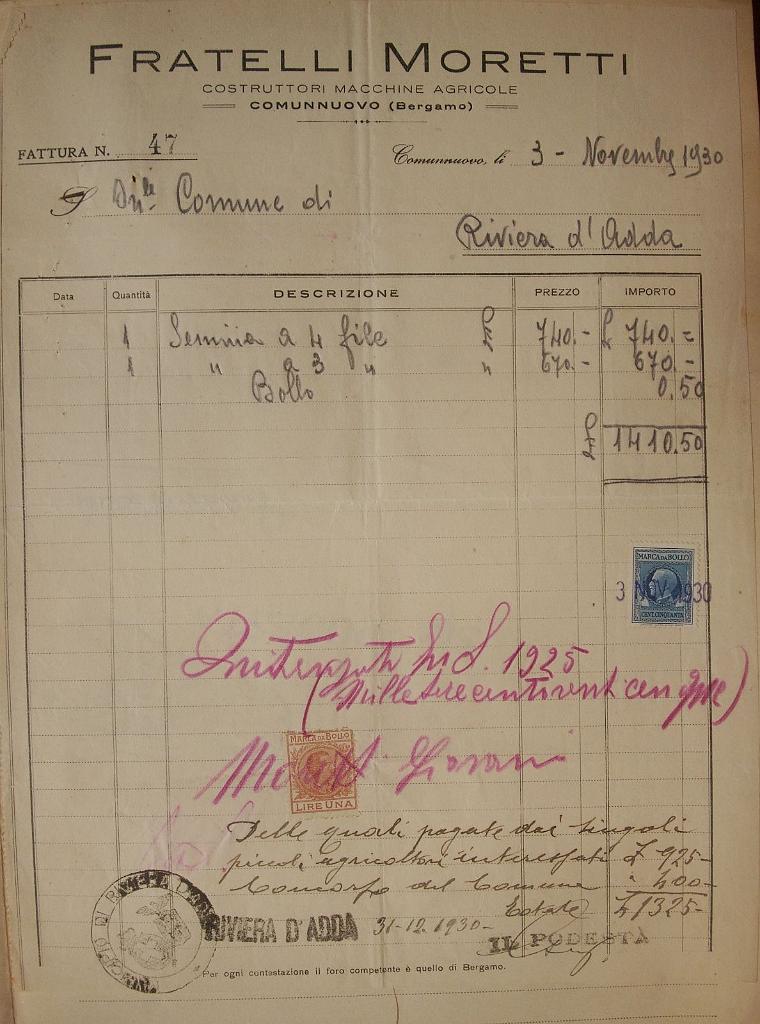 FRATELLI MORETTI
COSTRUTTORI MACCHINE AGRICOLE
COMUNNUOVO (Bergamo)
FATTURA N. 47
Comunnuovo, li 3 - Novembre 1930
Comune di
Riviera d'Adda
Data Quantità DESCRIZIONE PREZZO IMPORTO
1 a 4 file 740.- £ 740.=
1 " a 3 " " 670.- 670.-
Bollo 0.50
1410.50
MARCA DA BOLLO
3 NOV. 1930
CENT. CINQUANTA
1925
MARCA DA BOLLO
LIRE UNA
Delle quali pagate dai singoli
piccoli agricoltori interessati £ 925-
Concorso del Comune " 400-
Totale £ 1325-
RIVIERA D'ADDA 31-12-1930-
IL PODESTÀ
Per ogni contestazione il foro competente è quello di Bergamo.